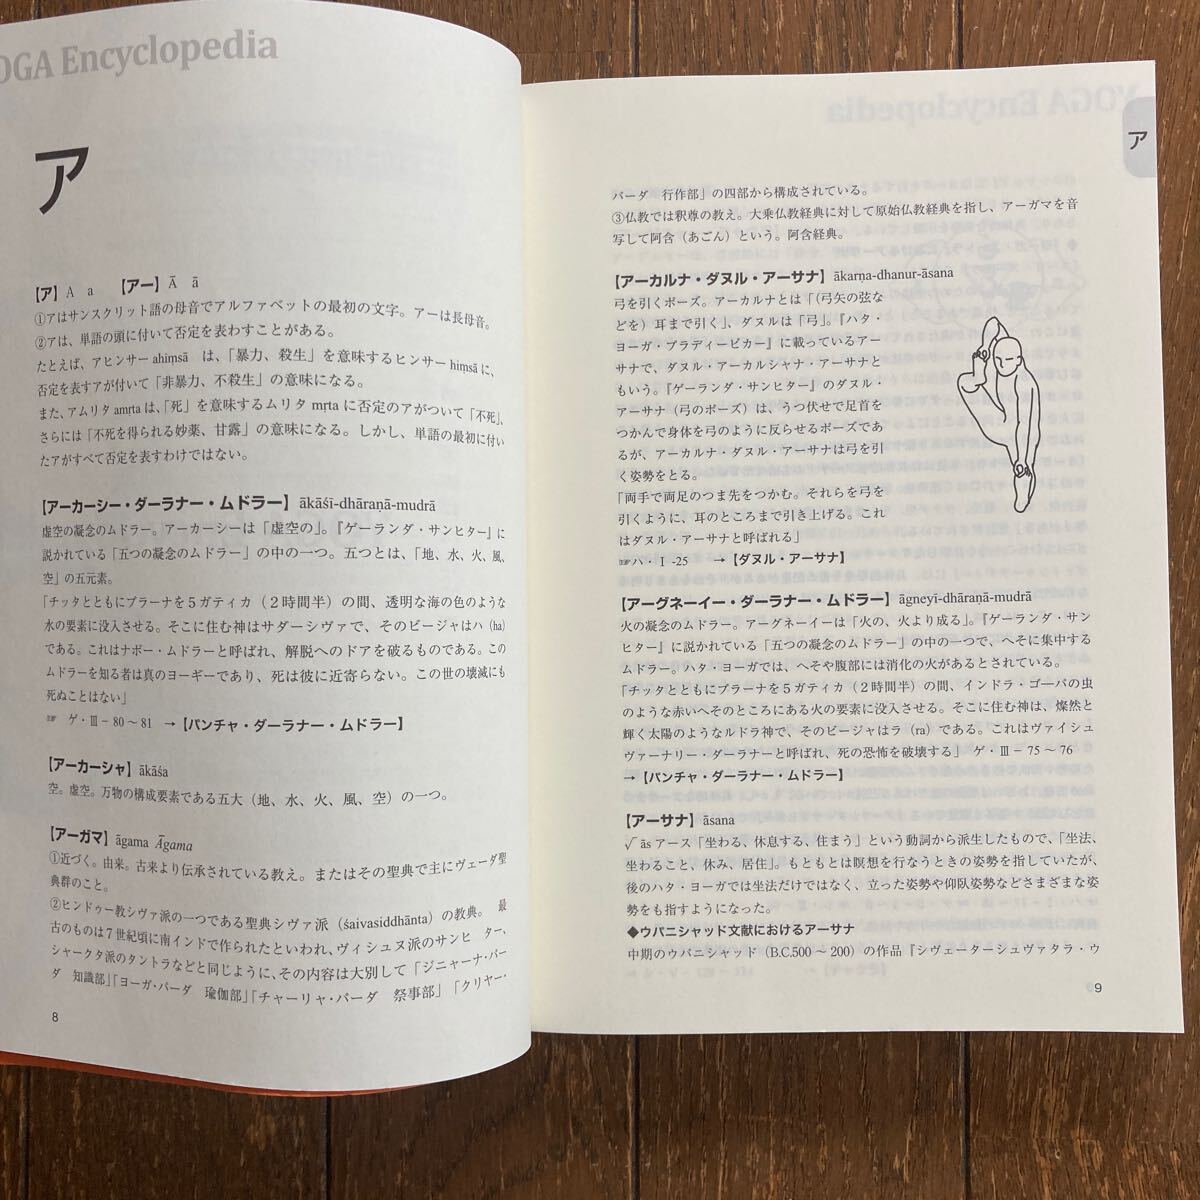 OGA Encyclopedia
ア
【ア】A a 【アー】Ā ā
①アはサンスクリット語の母音でアルファベットの最初の文字。アーは長母音。
②アは、単語の頭に付いて否定を表わすことがある。
たとえば、アヒンサー ahiṃsā は、「暴力、殺生」を意味するヒンサー hiṃsā に、
否定を表すアが付いて「非暴力、不殺生」の意味になる。
また、アムリタ amṛta は、「死」を意味するムリタ mṛta に否定のアがついて「不死」、
さらには「不死を得られる妙薬、甘露」の意味になる。しかし、単語の最初に付い
たアがすべて否定を表すわけではない。
【アーカーシー・ダーラナー・ムドラー】ākāśī-dhāraṇā-mudrā
虚空の凝念のムドラー。アーカーシーは「虚空の」。『ゲーランダ・サンヒター』に
説かれている「五つの凝念のムドラー」の中の一つ。五つとは、「地、水、火、風、
空」の五元素。
「チッタとともにプラーナを5ガティカ(2時間半)の間、透明な海の色のような
水の要素に没入させる。そこに住む神はサダーシヴァで、そのビージャはハ(ha)
である。これはナボー・ムドラーと呼ばれ、解脱へのドアを破るものである。この
ムドラーを知る者は真のヨーギーであり、死は彼に近寄らない。この世の壊滅にも
死ぬことはない」
☞ ゲ・Ⅲ－80～81 →【パンチャ・ダーラナー・ムドラー】
【アーカーシャ】ākāśa
空。虚空。万物の構成要素である五大(地、水、火、風、空)の一つ。
【アーガマ】āgama Āgama
①近づく。由来。古来より伝承されている教え。またはその聖典で主にヴェーダ聖
典群のこと。
②ヒンドゥー教シヴァ派の一つである聖典シヴァ派(śaivasiddhānta)の教典。 最
古のものは7世紀頃に南インドで作られたといわれ、ヴィシュヌ派のサンヒ ター、
シャークタ派のタントラなどと同じように、その内容は大別して「ジニャーナ・パー
ダ 知識部」「ヨーガ・パーダ 瑜伽部」「チャーリャ・パーダ 祭事部」「クリヤー・
8
ア
パーダ 行作部」の四部から構成されている。
③仏教では釈尊の教え。大乗仏教経典に対して原始仏教経典を指し、アーガマを音
写して阿含(あごん)という。阿含経典。
【アーカルナ・ダヌル・アーサナ】ākarṇa-dhanur-āsana
弓を引くポーズ。アーカルナとは「(弓矢の弦な
どを)耳まで引く」、ダヌルは「弓」。『ハタ・
ヨーガ・プラディーピカー』に載っているアー
サナで、ダヌル・アーカルシャナ・アーサナと
もいう。『ゲーランダ・サンヒター』のダヌル・
アーサナ(弓のポーズ)は、うつ伏せで足首を
つかんで身体を弓のように反らせるポーズであ
るが、アーカルナ・ダヌル・アーサナは弓を引
く姿勢をとる。
「両手で両足のつま先をつかむ。それらを弓を
引くように、耳のところまで引き上げる。これ
はダヌル・アーサナと呼ばれる」
☞ハ・Ⅰ-25 →【ダヌル・アーサナ】
【アーグネーイー・ダーラナー・ムドラー】āgneyī-dhāraṇā-mudrā
火の凝念のムドラー。アーグネーイーは「火の、火より成る」。『ゲーランダ・サン
ヒター』に説かれている「五つの凝念のムドラー」の中の一つで、へそに集中する
ムドラー。ハタ・ヨーガでは、へそや腹部には消化の火があるとされている。
「チッタとともにプラーナを5ガティカ(2時間半)の間、インドラ・ゴーパの虫
のような赤いへそのところにある火の要素に没入させる。そこに住む神は、燦然と
輝く太陽のようなルドラ神で、そのビージャはラ(ra)である。これはヴァイシュ
ヴァーナリー・ダーラナーと呼ばれ、死の恐怖を破壊する」 ゲ・Ⅲ－75～76
→【パンチャ・ダーラナー・ムドラー】
【アーサナ】āsana
√ās アース「坐わる、休息する、住まう」という動詞から派生したもので、「坐法、
坐わること、休み、居住」。もともとは瞑想を行なうときの姿勢を指していたが、
後のハタ・ヨーガでは坐法だけではなく、立った姿勢や仰臥姿勢などさまざまな姿
勢をも指すようになった。
◆ウパニシャッド文献におけるアーサナ
中期のウパニシャッド(B.C.500～200)の作品『シヴェーターシュヴァタラ・ウ
9